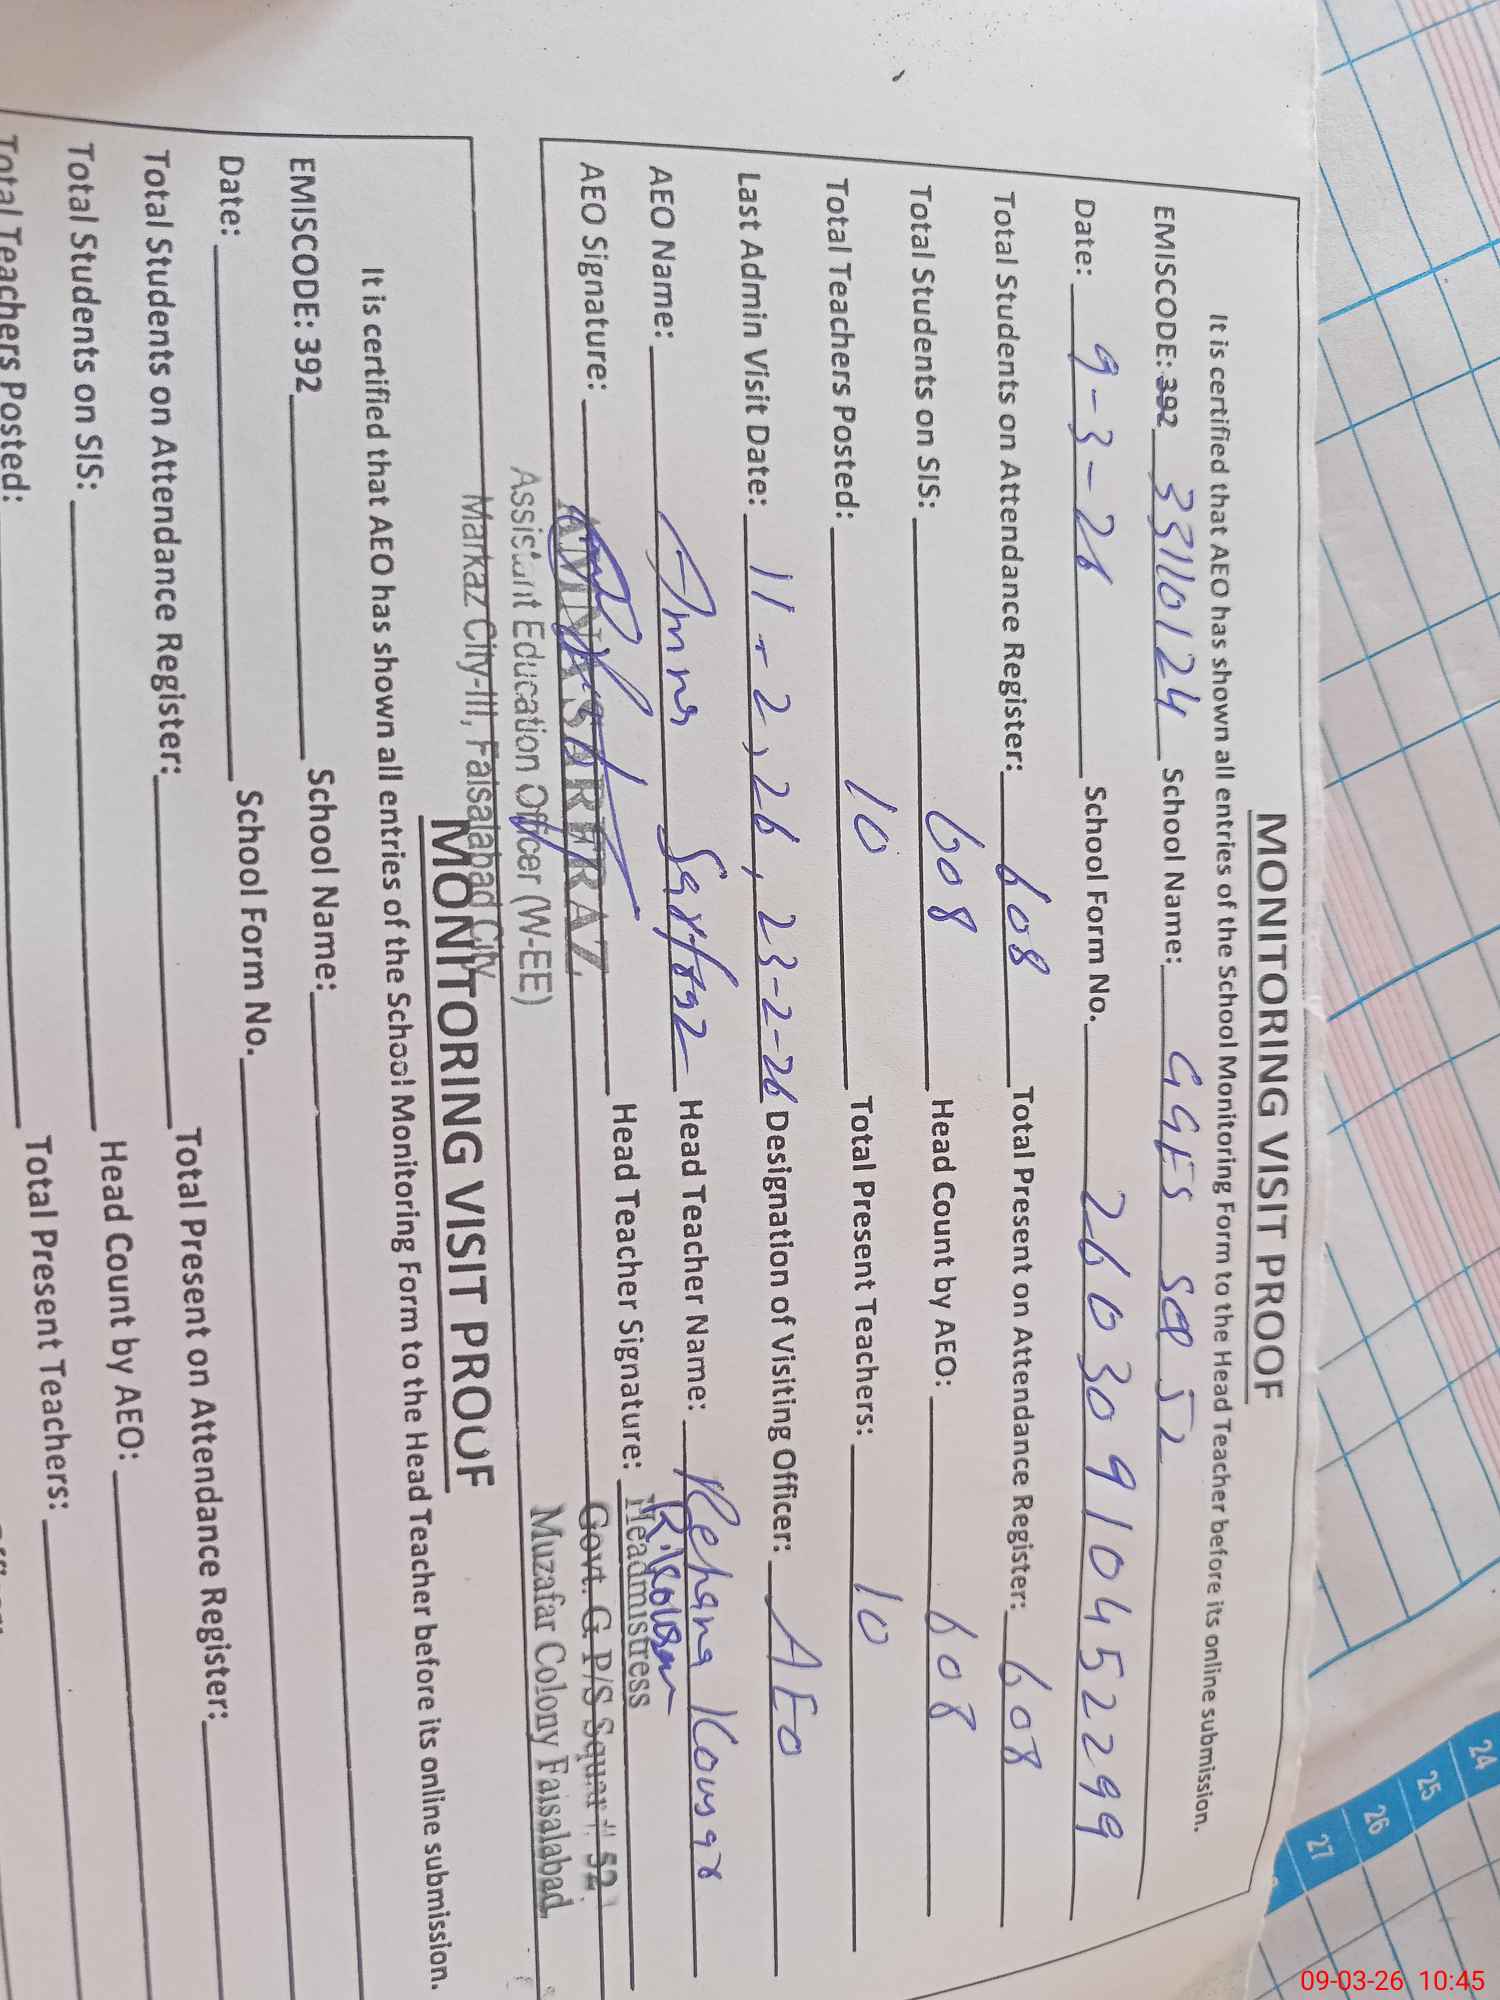 MONITORING VISIT PROOF
It is certified that AEO has shown all entries of the School Monitoring Form to the Head Teacher before its online submission.
EMISCODE: 392 33110124 School Name: GGES SQ 52
Date: 9-3-26 School Form No. 26030910452299
Total Students on Attendance Register: 608 Total Present on Attendance Register: 608
Total Students on SIS: 608 Head Count by AEO: 608
Total Teachers Posted: 10 Total Present Teachers: 10
Last Admin Visit Date: 11-2,26, 23-2-26 Designation of Visiting Officer: AEO
AEO Name: Amna Sarfraz Head Teacher Name: Rehana Kousar
AEO Signature: Head Teacher Signature: R.Kousar
AMNA SARFRAZ Headmistress
Assistant Education Officer (W-EE) Govt. G P/S Squar # 52
Markaz City-III, Faisalabad City Muzafar Colony Faisalabad
MONITORING VISIT PROOF
It is certified that AEO has shown all entries of the School Monitoring Form to the Head Teacher before its online submission.
EMISCODE: 392 School Name:
Date: School Form No.
Total Students on Attendance Register: Total Present on Attendance Register:
Total Students on SIS: Head Count by AEO:
Total Teachers Posted: Total Present Teachers:
24
25
26
27
09-03-26 10:45